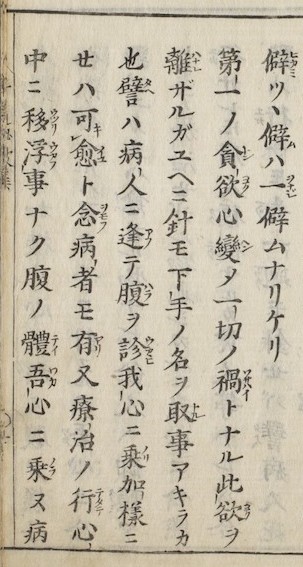 僻ツヽ僻ハ一僻ムナリケリ
第一ノ貪欲心變メ一切ノ禍トナル此欲ヲ
離ザルガユヘニ針モ下手ノ名ヲ取事アキラカ
也譬ハ病人ニ逢テ腹ヲ診我心ニ乗加樣ニ
セハ可愈ト念病者モ有又療治ノ行心
中ニ移浮事ナク腹ノ體吾心ニ乗ヌ病